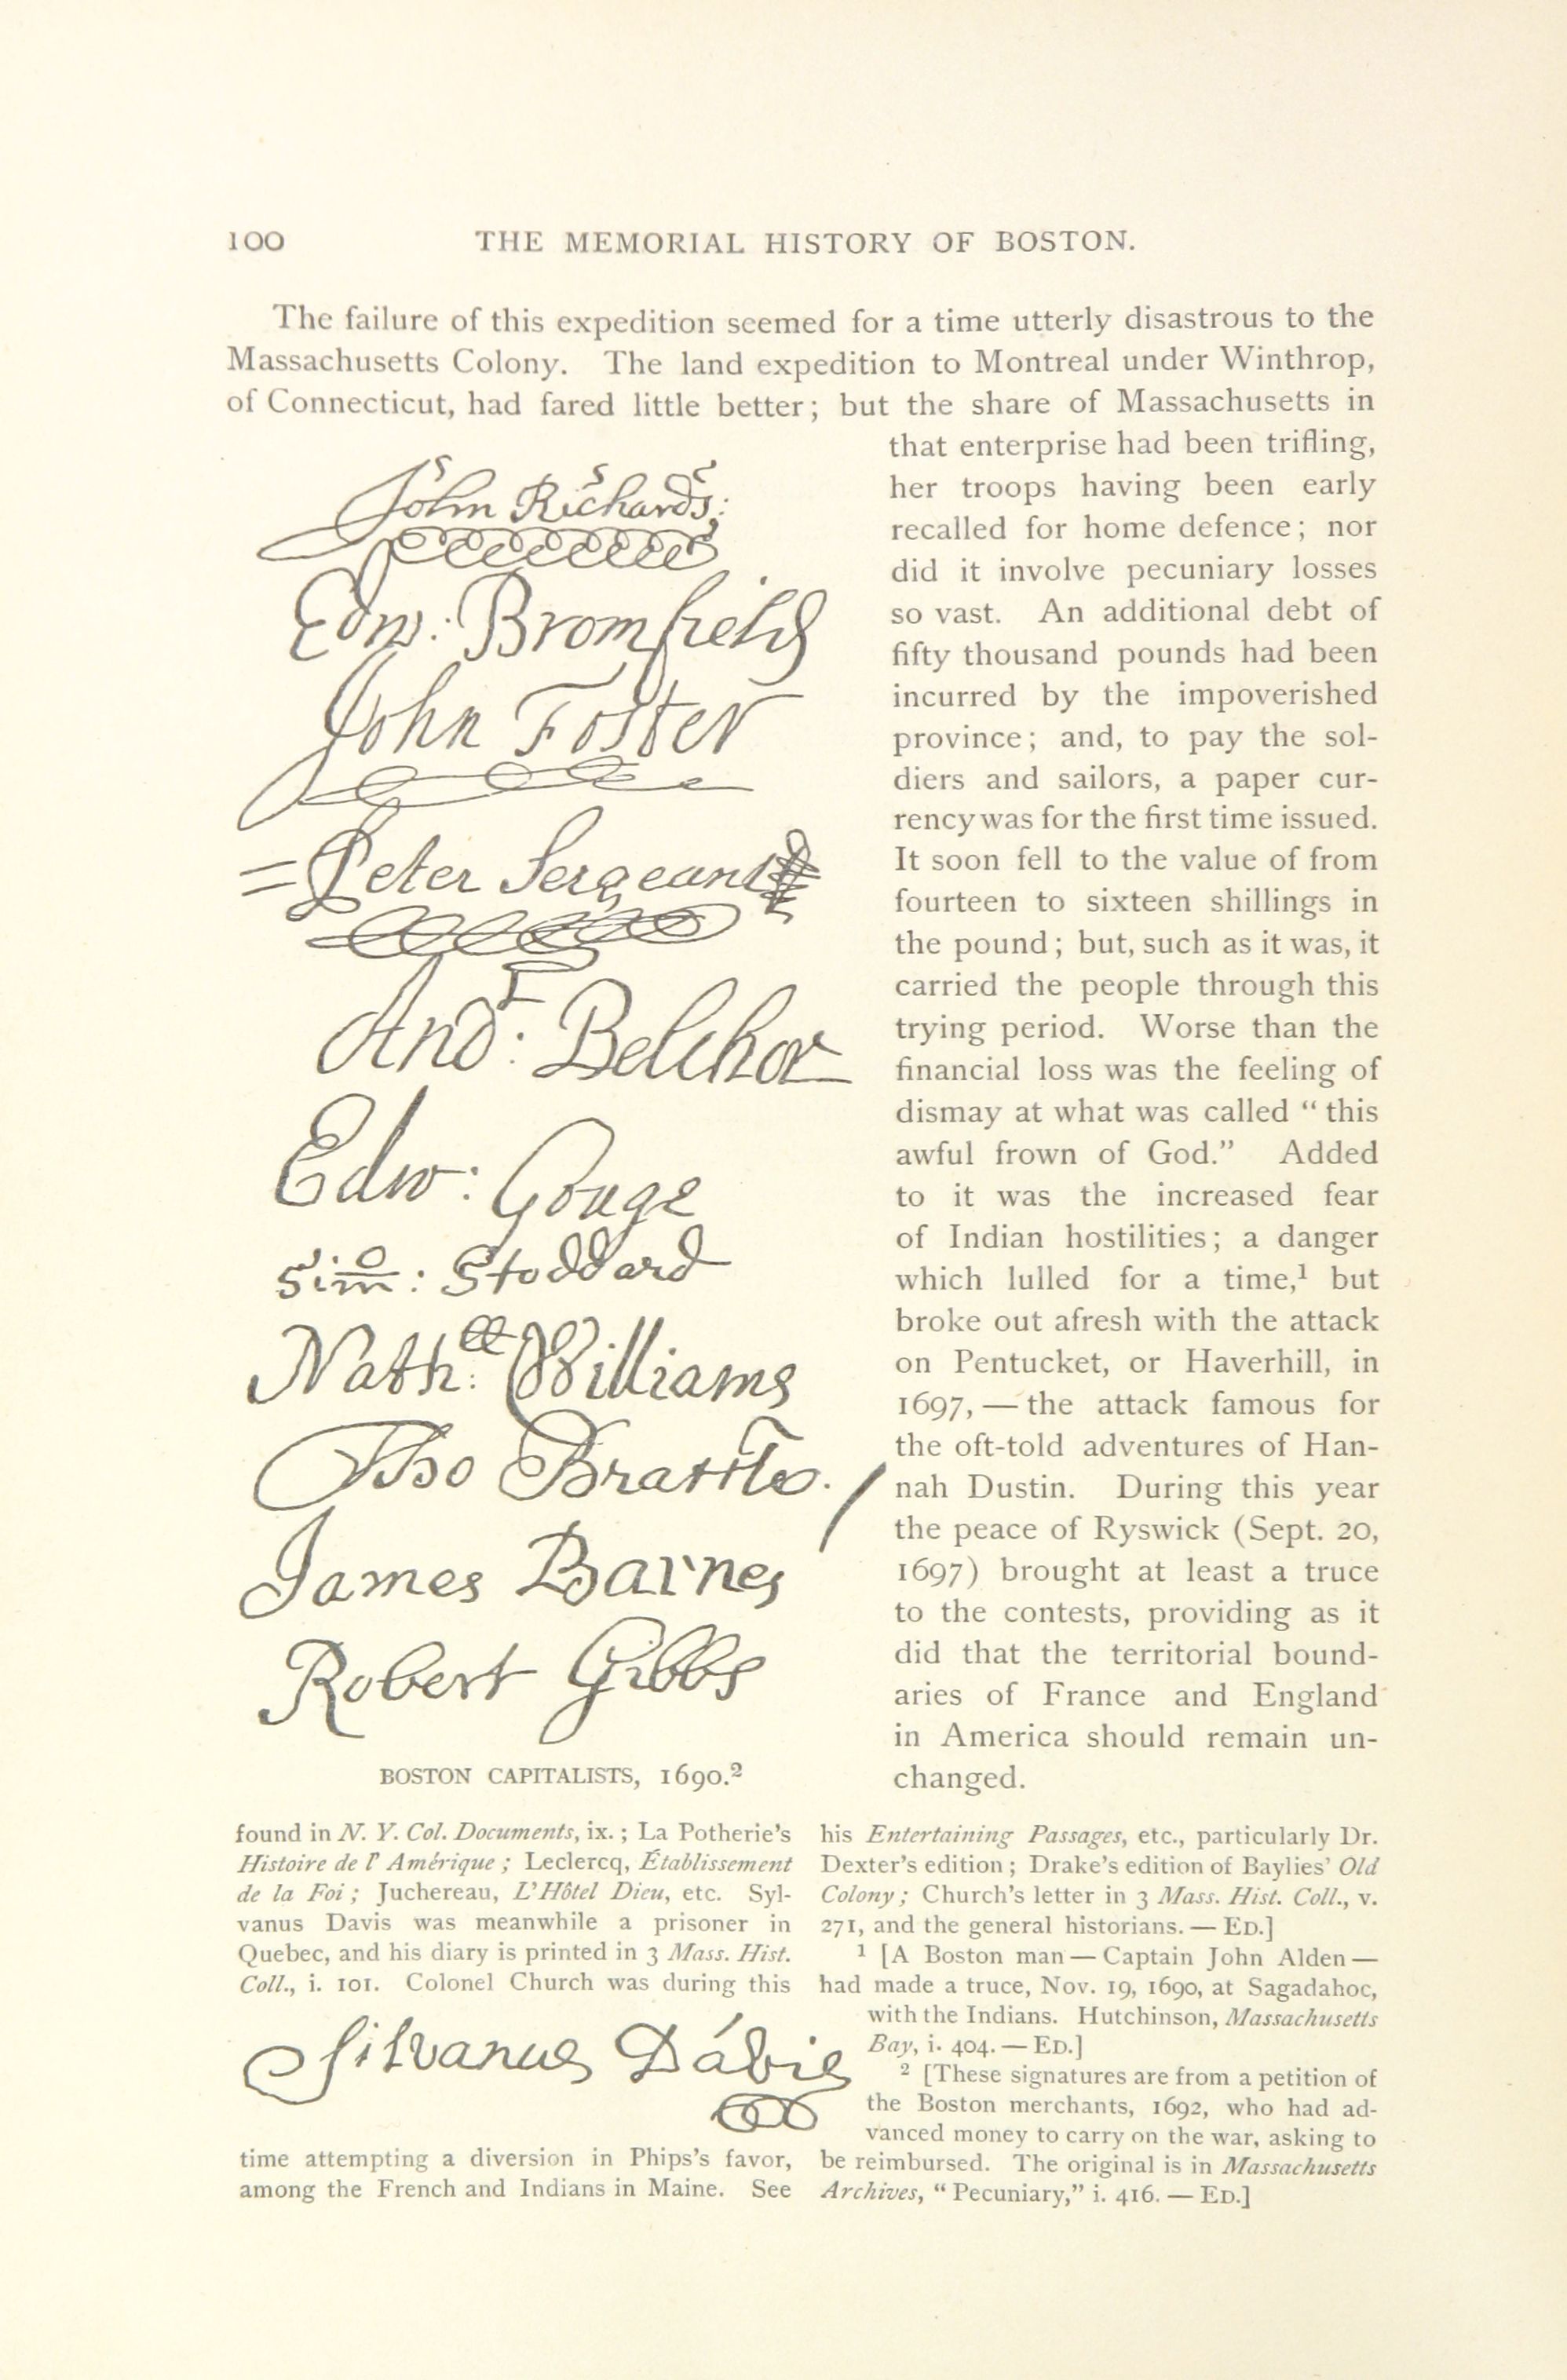 100 THE MEMORIAL HISTORY OF BOSTON.
The failure of this expedition seemed for a time utterly disastrous to the
Massachusetts Colony. The land expedition to Montreal under Winthrop,
of Connecticut, had fared little better; but the share of Massachusetts in
that enterprise had been trifling,
her troops having been early
recalled for home defence; nor
did it involve pecuniary losses
so vast. An additional debt of
fifty thousand pounds had been
incurred by the impoverished
province; and, to pay the sol-
diers and sailors, a paper cur-
rency was for the first time issued.
It soon fell to the value of from
fourteen to sixteen shillings in
the pound; but, such as it was, it
carried the people through this
trying period. Worse than the
financial loss was the feeling of
dismay at what was called “this
awful frown of God.” Added
to it was the increased fear
of Indian hostilities; a danger
which lulled for a time,¹ but
broke out afresh with the attack
on Pentucket, or Haverhill, in
1697, — the attack famous for
the oft-told adventures of Han-
nah Dustin. During this year
the peace of Ryswick (Sept. 20,
1697) brought at least a truce
to the contests, providing as it
did that the territorial bound-
aries of France and England
in America should remain un-
changed.
John Richards:
Edw: Bromfield
John Foster
Peter Sergeant
Andr: Belcher
Edw: Gouge
Simo: Stoddard
Nathll: Williams
Tho Brattle.
James Barnes
Robert Gibbs
BOSTON CAPITALISTS, 1690.²
found in N. Y. Col. Documents, ix.; La Potherie’s
Histoire de l’ Amérique; Leclercq, Établissement
de la Foi; Juchereau, L’Hôtel Dieu, etc. Syl-
vanus Davis was meanwhile a prisoner in
Quebec, and his diary is printed in 3 Mass. Hist.
Coll., i. 101. Colonel Church was during this
Silvanus Davis
time attempting a diversion in Phips’s favor,
among the French and Indians in Maine. See
his Entertaining Passages, etc., particularly Dr.
Dexter’s edition; Drake’s edition of Baylies’ Old
Colony; Church’s letter in 3 Mass. Hist. Coll., v.
271, and the general historians. — ED.]
¹ [A Boston man — Captain John Alden —
had made a truce, Nov. 19, 1690, at Sagadahoc,
with the Indians. Hutchinson, Massachusetts
Bay, i. 404. — ED.]
² [These signatures are from a petition of
the Boston merchants, 1692, who had ad-
vanced money to carry on the war, asking to
be reimbursed. The original is in Massachusetts
Archives, “Pecuniary,” i. 416. — ED.]